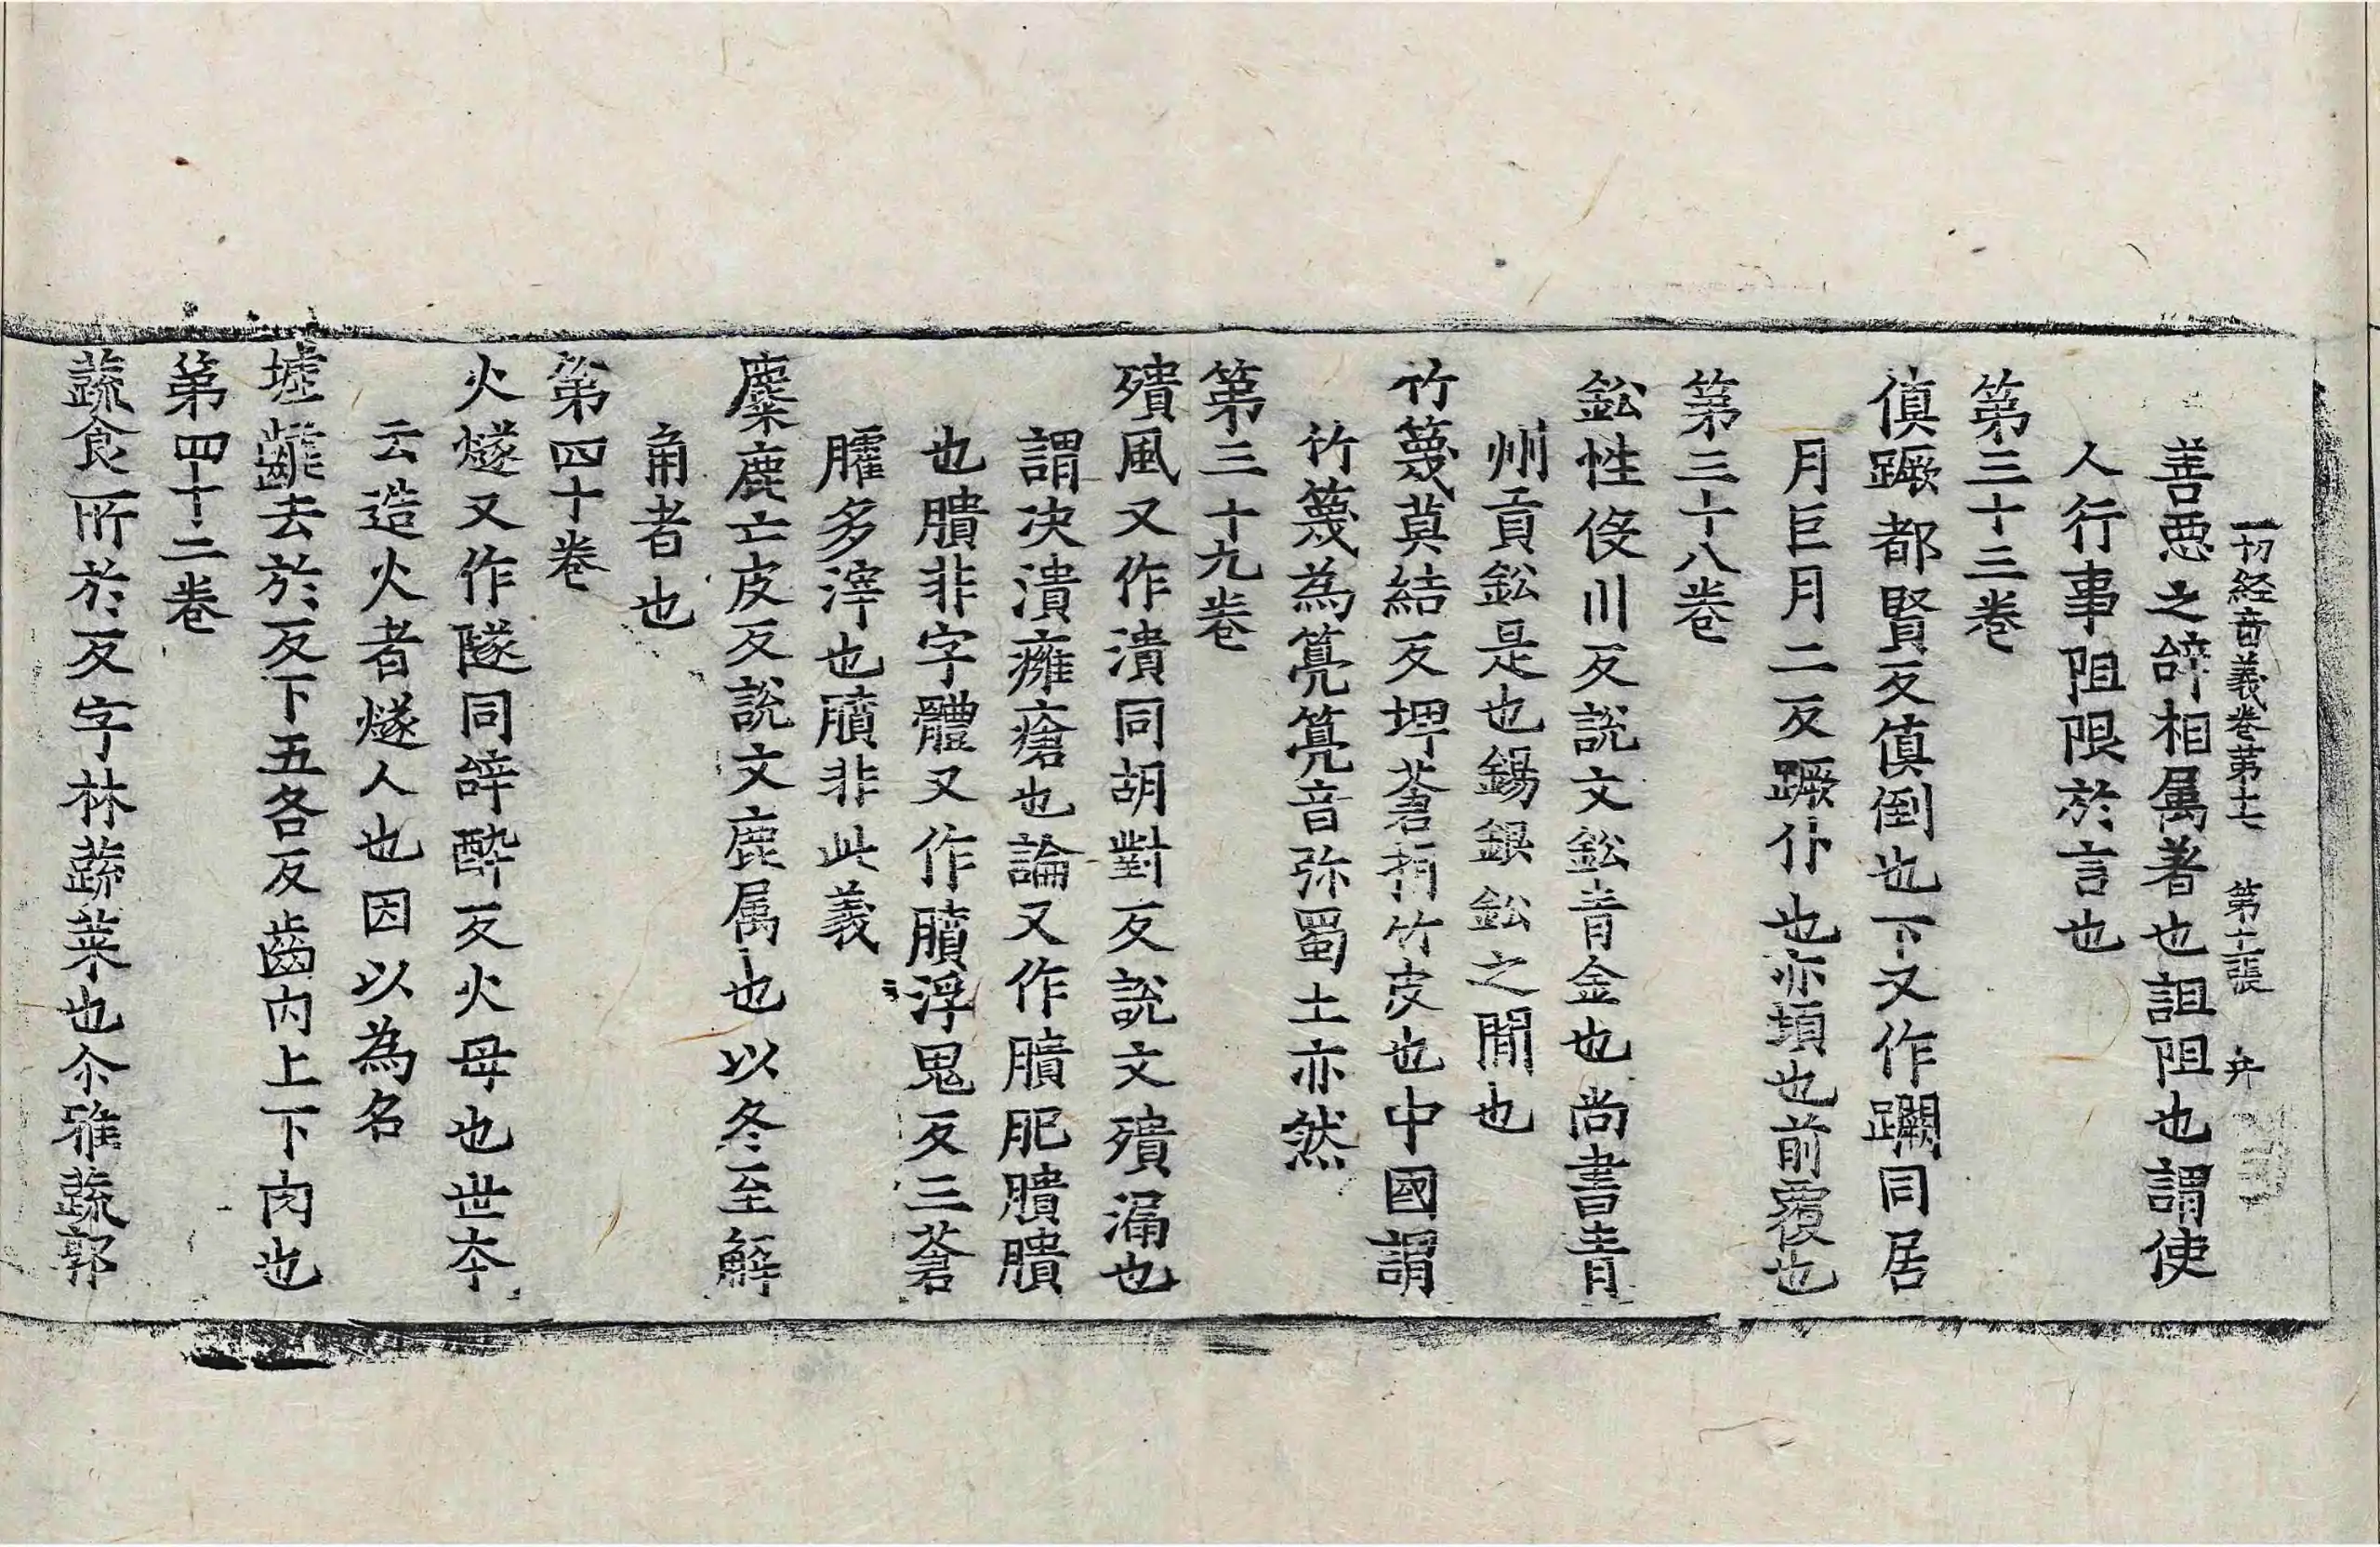 一切經音義卷第七 第十張 弁
善惡之辝相属著也詛阻也謂使
人行事阻限於言也
第三十三卷
傎蹶都賢反傎倒也下又作𨇮同居
月巨月二反蹶仆也亦頓也前覆也
第三十八卷
鈆性役川反說文鈆青金也尚書青
州貢鈆是也錫銀鈆之閒也
竹篾莫結反埤蒼折竹皮也中國謂
竹篾為䈏䈏音弥蜀土亦然
第三十九卷
殨風又作潰同胡對反說文殨漏也
謂决潰癰瘡也論又作膭肥膭膭
也膭非字體又作膭浮鬼反三蒼
臛多滓也膭非此義
麋鹿亡皮反說文鹿属也以冬至解
角者也
第四十卷
火燧又作隧同辝醉反火母也世夲
云造火者燧人也因以為名
墟齶去於反下五各反齒内上下肉也
第四十二卷
蔬食所於反字林蔬菜也尒雅蔬郭